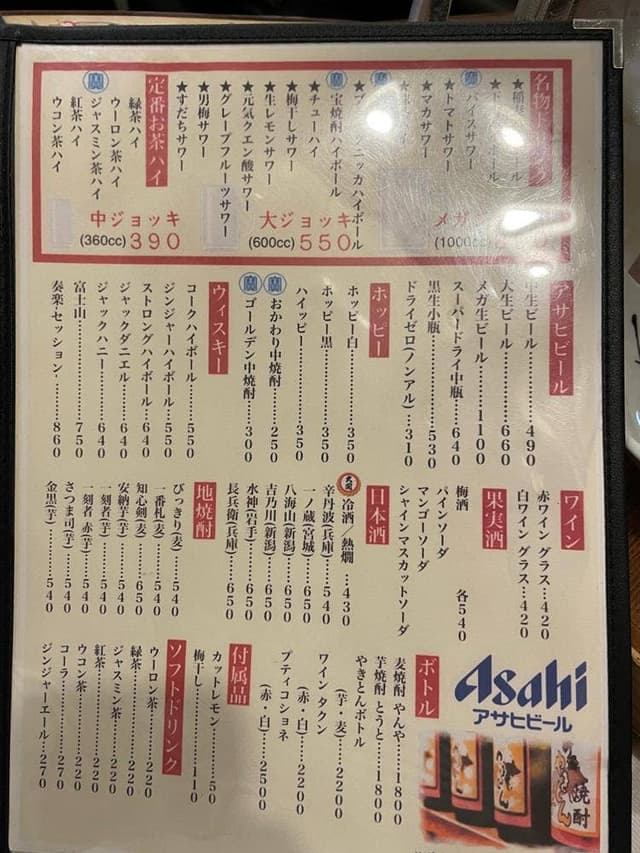 名物ドリンク
★バイスサワー
★トマトサワー
★マカサワー
★宝焼酎ハイボール
★チューハイ
★梅干しサワー
★生レモンサワー
★元気クエン酸サワー
★グレープフルーツサワー
★男梅サワー
★すだちサワー
定番お茶ハイ
緑茶ハイ
ウーロン茶ハイ
ジャスミン茶ハイ
紅茶ハイ
ウコン茶ハイ
(1000cc)
大ジョッキ
(600cc) 550
中ジョッキ
(360cc) 390
アサヒビール
中生ビール………490
大生ビール………660
メガ生ビール………1100
スーパードライ中瓶………640
黒生小瓶………530
ドライゼロ(ノンアル)…310
ホッピー
ホッピー白………350
ホッピー黒………350
ハイッピー………350
おかわり中焼酎………250
ゴールデン中焼酎………300
ウィスキー
コークハイボール………550
ジンジャーハイボール…550
ストロングハイボール…640
ジャックダニエル………640
ジャックハニー………640
富士山………750
奏楽セッション………860
ワイン
赤ワイン グラス…420
白ワイン グラス…420
果実酒
梅酒 各540
パインソーダ
マンゴーソーダ
シャインマスカットソーダ
日本酒
冷酒／熱燗…430
辛丹波(兵庫)…540
一ノ蔵(宮城)…650
八海山(新潟)…650
吉乃川(新潟)…650
水神(岩手)…650
長兵衛(兵庫)…650
地焼酎
びっきり(麦)…540
一番札(麦)…540
知心剣(麦)…650
安納芋(芋)…540
一刻者(芋)…540
一刻者 赤(芋)…540
さつま司(芋)…540
金黒(芋)…540
Asahi
アサヒビール
ボトル
麦焼酎 やんや…1800
芋焼酎 とうと…1800
やきとんボトル
(芋・麦)…2200
ワイン タクン
(赤・白)…2200
プティコショネ
(赤・白)…2500
付属品
カットレモン………50
梅干し………110
ソフトドリンク
ウーロン茶………220
緑茶………220
ジャスミン茶………220
紅茶………220
ウコン茶………220
コーラ………270
ジンジャーエール…270
焼酎